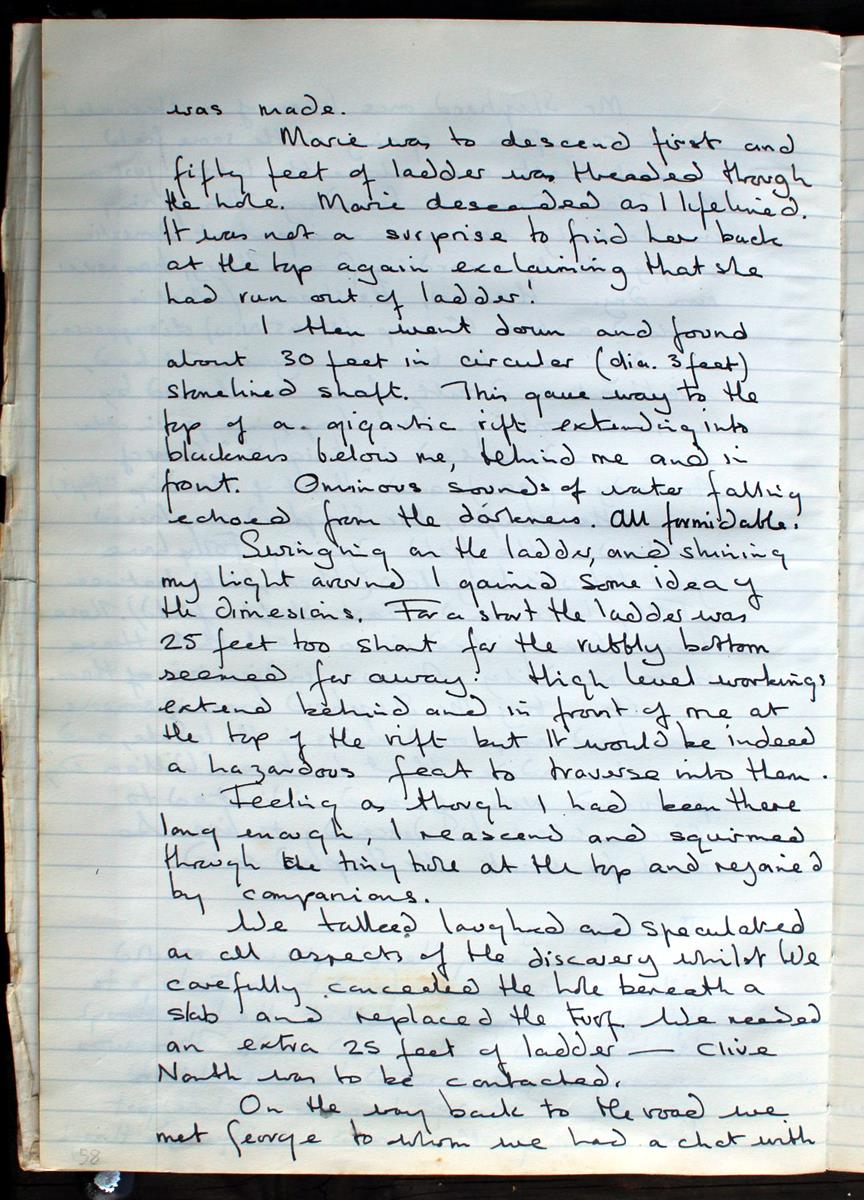 was made.
Marie was to descend first and
fifty feet of ladder was threaded through
the hole. Marie descended as I lifelined.
It was not a surprise to find her back
at the top again exclaiming that she
had run out of ladder!
I then went down and found
about 30 feet in circular (dia. 3 feet)
stonelined shaft. This gave way to the
top of a gigantic rift extending into
blackness below me, behind me and in
front. Ominous sounds of water falling
echoed from the darkness. All formidable.
Swinging on the ladder, and shining
my light around I gained some idea of
the dimesions. For a start the ladder was
25 feet too short for the rubbly bottom
seemed far away! High level workings
extend behind and in front of me at
the top of the rift but it would be indeed
a hazardous feat to traverse into them.
Feeling as though I had been there
long enough, I reascend and squirmed
through the tiny hole at the top and regained
by companions.
We talked laughed and speculated
on all aspects of the discovery whilst we
carefully concealed the hole beneath a
slab and replaced the turf. We needed
an extra 25 feet of ladder — Clive
North was to be contacted.
On the way back to the road we
met George to whom we had a chat with
58